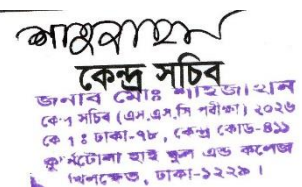 শাহজাহান
কেন্দ্র সচিব
জনাব মোঃ শাহজাহান
কেন্দ্র সচিব (এস.এস.সি পরীক্ষা) ২০২৬
কেন্দ্র ঃ ঢাকা-৭৮, কেন্দ্র কোড-৪১১
কুর্মিটোলা হাই স্কুল এন্ড কলেজ
খিলক্ষেত, ঢাকা-১২২৯।